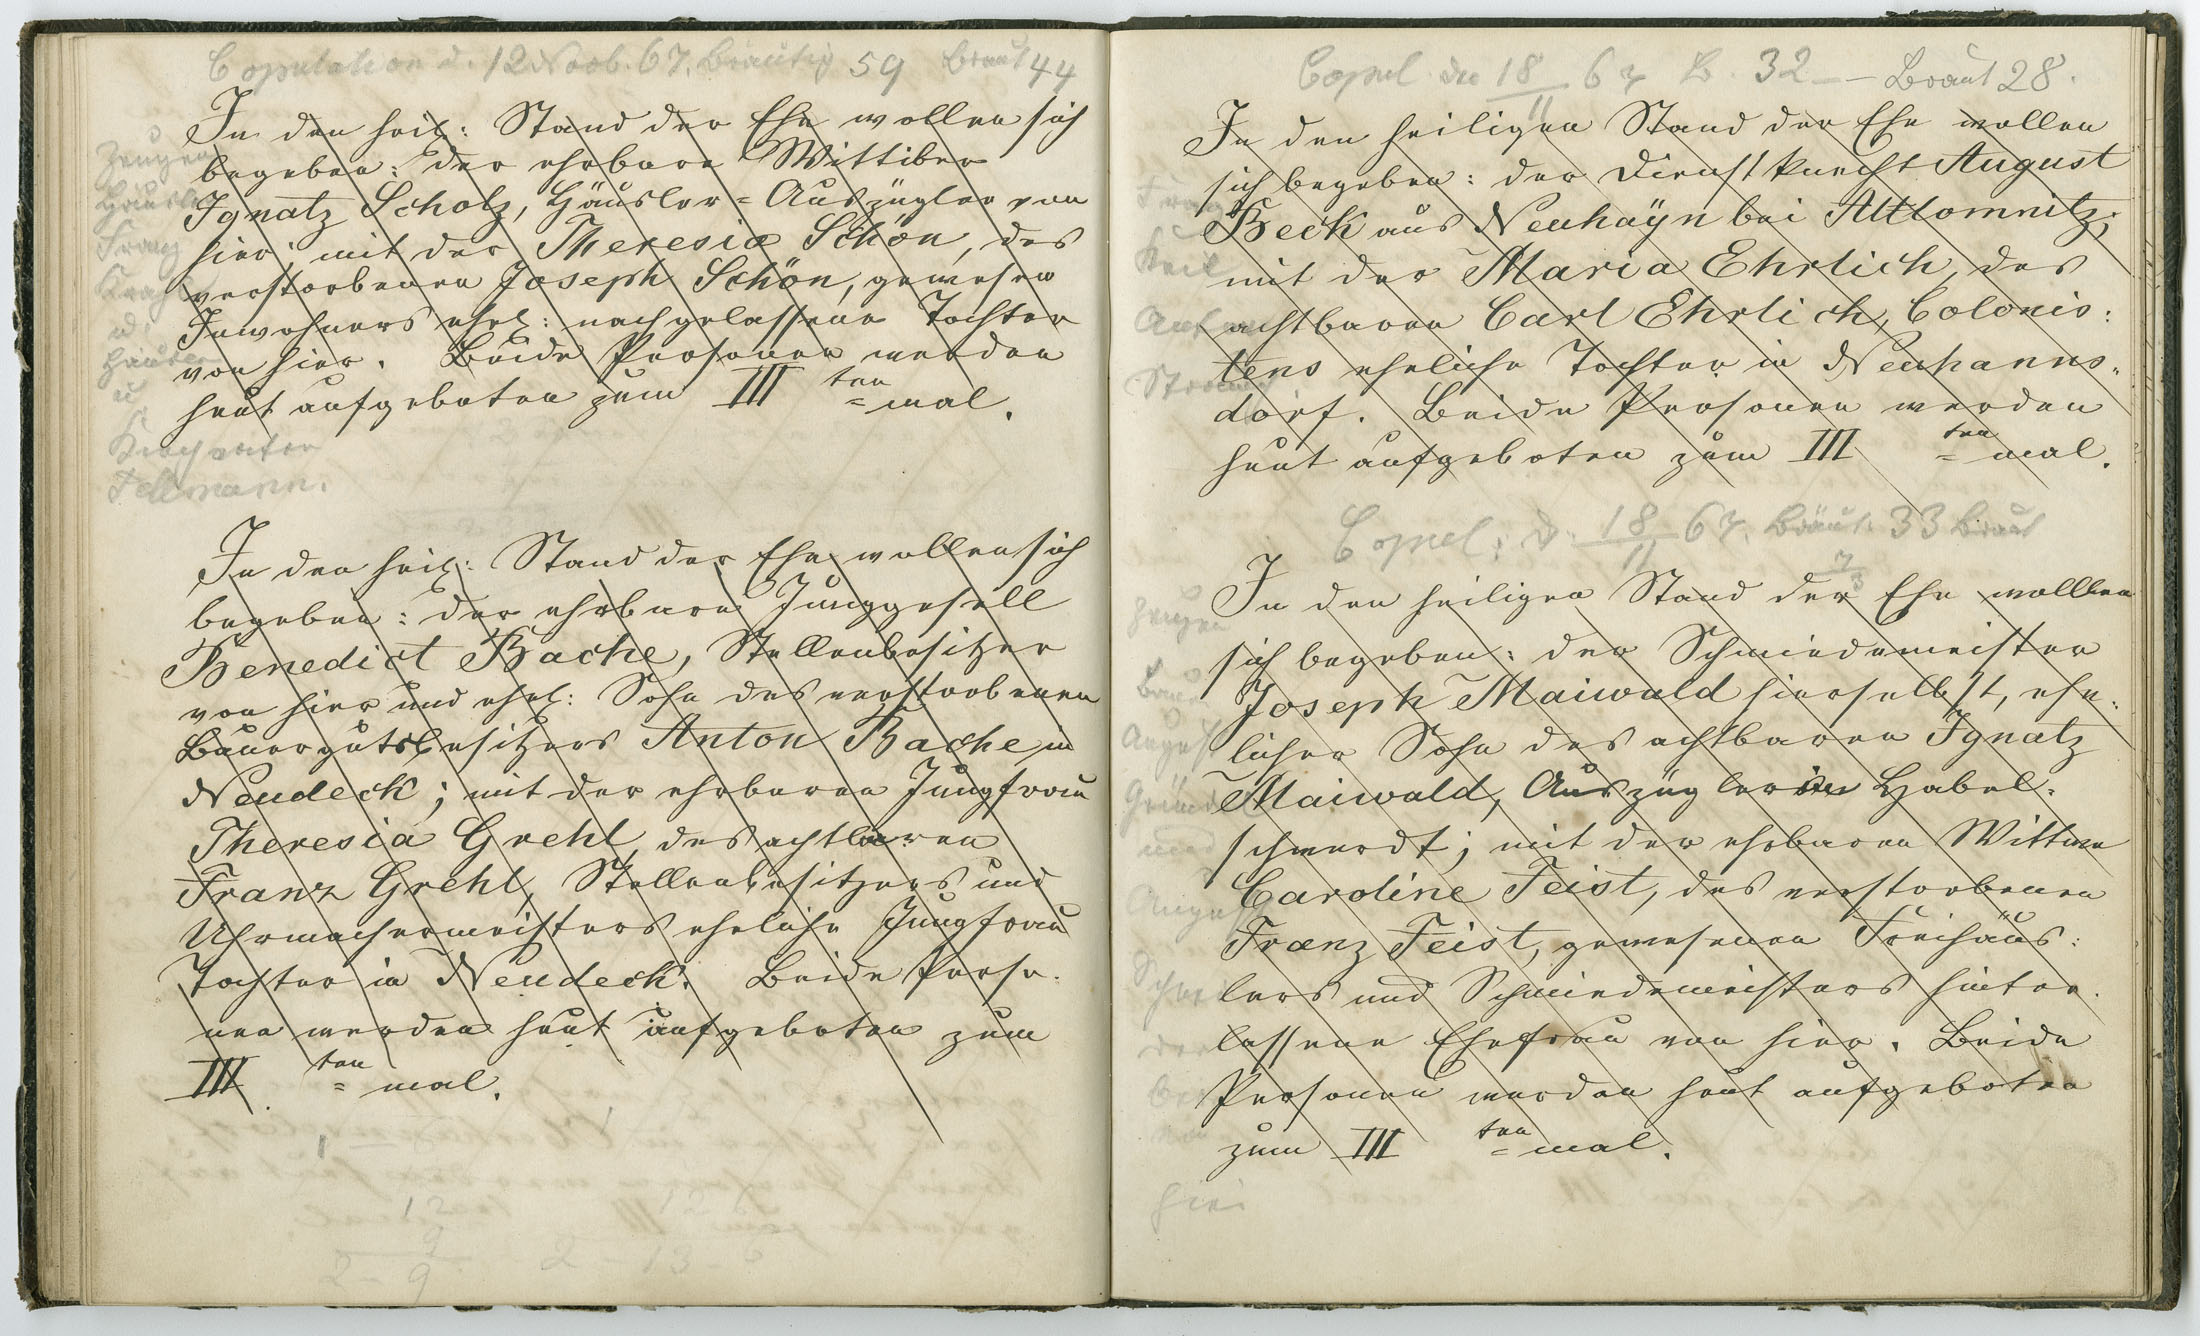 Copulation d. 12 Novb. 67. Bräutig 59 Braut 44
In den heil: Stand der Ehe wollen sich
begeben: der ehrbare Wittiber
Ignatz Scholz, Häusler-Auszügler von
hier; mit der Theresia Schön, des
verstorbenen Joseph Schön, gewesen
Inwohners ehel: nachgelassene Tochter
von hier. Beide Personen werden
heut aufgeboten zum III ten = mal.
Zeugen
Häusler
Franz
u.
Häusler
u.
Kirchvater
Tellmann.
In den heil: Stand der Ehe wollen sich
begeben: der ehrbare Junggesell
Benedict Bache, Stellenbesitzer
von hier und ehel: Sohn des verstorbenen
Bauergutsbesitzers Anton Bache in
Neudeck; mit der ehrbaren Jungfrau
Theresia Grehl, des achtbaren
Franz Grehl, Stellenbesitzers und
Uhrmachermeisters eheliche Jungfrau
Tochter in Neudeck. Beide Perso-
nen werden heut aufgeboten zum
III ten = mal.
1
12
9
2-9
2-13-6
Copul. den 18/11 67 B. 32 -- Braut 28.
In den heiligen Stand der Ehe wollen
sich begeben: der Dienstknecht August
Beck aus Neuhayn bei Altlomnitz;
mit der Maria Ehrlich, des
achtbaren Carl Ehrlich, Colonis:
tens eheliche Tochter in Neuhanns-
dorf. Beide Personen werden
heut aufgeboten zum III ten = mal.
Franz
Keil
Copul: d. 18/11 67. Bräut. 33 Braut
7/3
In den heiligen Stand der Ehe wollen
sich begeben: der Schmiedemeister
Joseph Maiwald hierselbst, ehe-
licher Sohn des achtbaren Ignatz
Maiwald, Auszügler in Habel-
schwerdt; mit der ehrbaren Wittwe
Caroline Feist, des verstorbenen
Franz Feist, gewesenen Freihäus:
lers und Schmiedemeisters hinter-
lassene Ehefrau von hier. Beide
Personen werden heut aufgeboten
zum III ten = mal.
Zeugen
August
und
August
hier